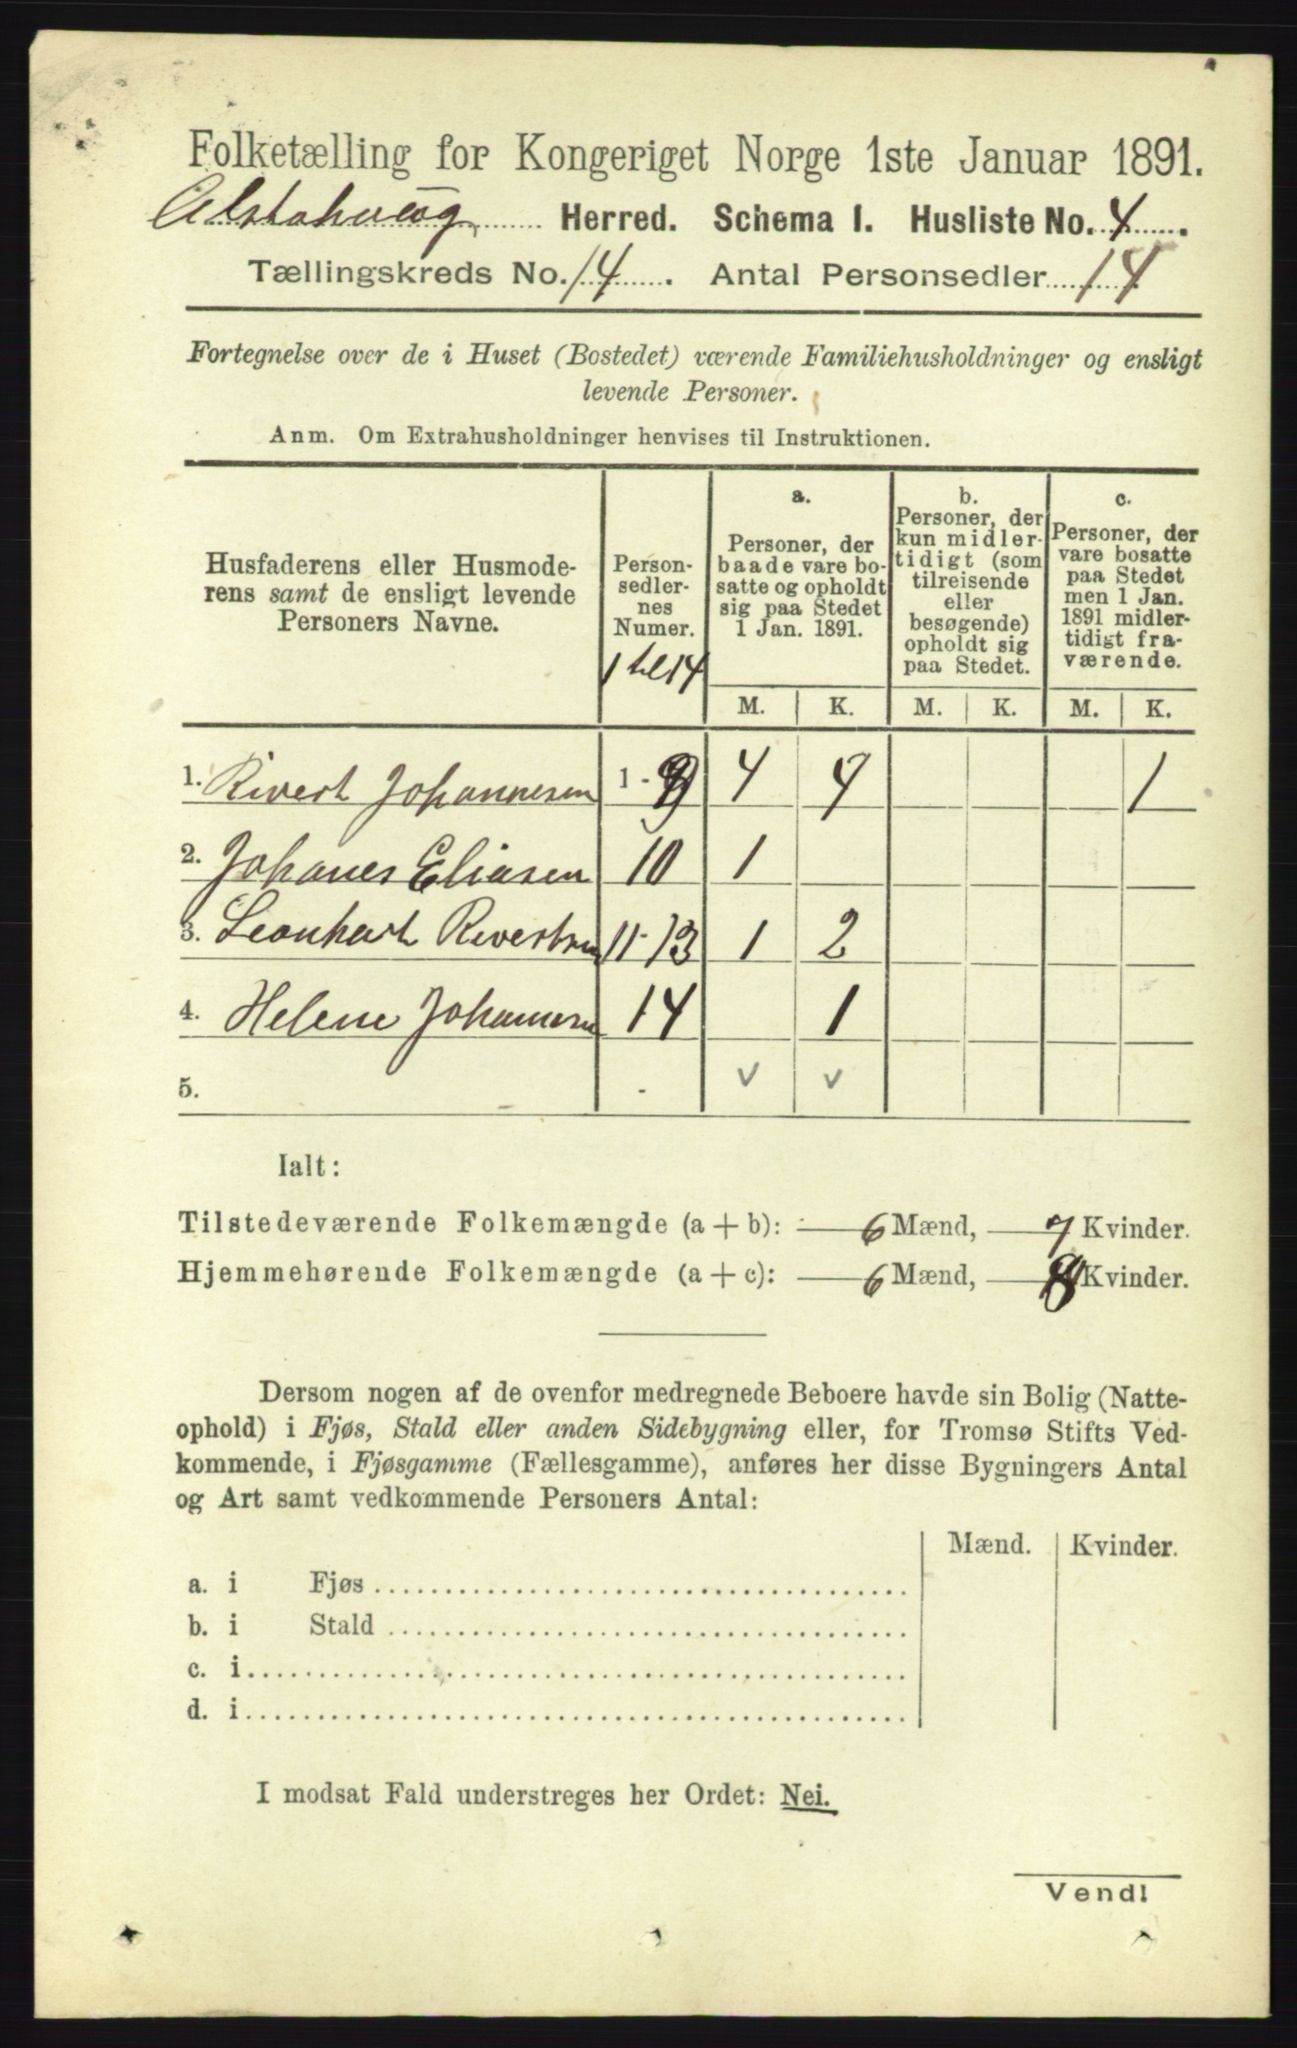 Folketælling for Kongeriget Norge 1ste Januar 1891.
Alstahaug Herred. Schema I. Husliste No. 4.
Tællingskreds No. 14. Antal Personsedler 14
Fortegnelse over de i Huset (Bostedet) værende Familiehusholdninger og ensligt
levende Personer.
Anm. Om Extrahusholdninger henvises til Instruktionen.
Husfaderens eller Husmode-
rens samt de ensligt levende
Personers Navne.
Person-
sedler-
nes
Numer.
1 til 14
a.
Personer, der
baade vare bo-
satte og opholdt
sig paa Stedet
1 Jan. 1891.
b.
Personer, der
kun midler-
tidigt (som
tilreisende
eller
besøgende)
opholdt sig
paa Stedet.
c.
Personer, der
vare bosatte
paa Stedet
men 1 Jan.
1891 midler-
tidigt fra-
værende.
M. K. M. K. M. K.
1. Rivert Johannesen 1 - 9 4 4 1
2. Johanes Eliasen 10 1
3. Leonhart Rivertsen 11-13 1 2
4. Helene Johannesen 14 1
5. - v v
Ialt:
Tilstedeværende Folkemængde (a + b): 6 Mænd, 7 Kvinder.
Hjemmehørende Folkemængde (a + c): 6 Mænd, 8 Kvinder.
Dersom nogen af de ovenfor medregnede Beboere havde sin Bolig (Natte-
ophold) i Fjøs, Stald eller anden Sidebygning eller, for Tromsø Stifts Ved-
kommende, i Fjøsgamme (Fællesgamme), anføres her disse Bygningers Antal
og Art samt vedkommende Personers Antal:
Mænd. Kvinder.
a. i Fjøs
b. i Stald
c. i
d. i
I modsat Fald understreges her Ordet: Nei.
Vend!